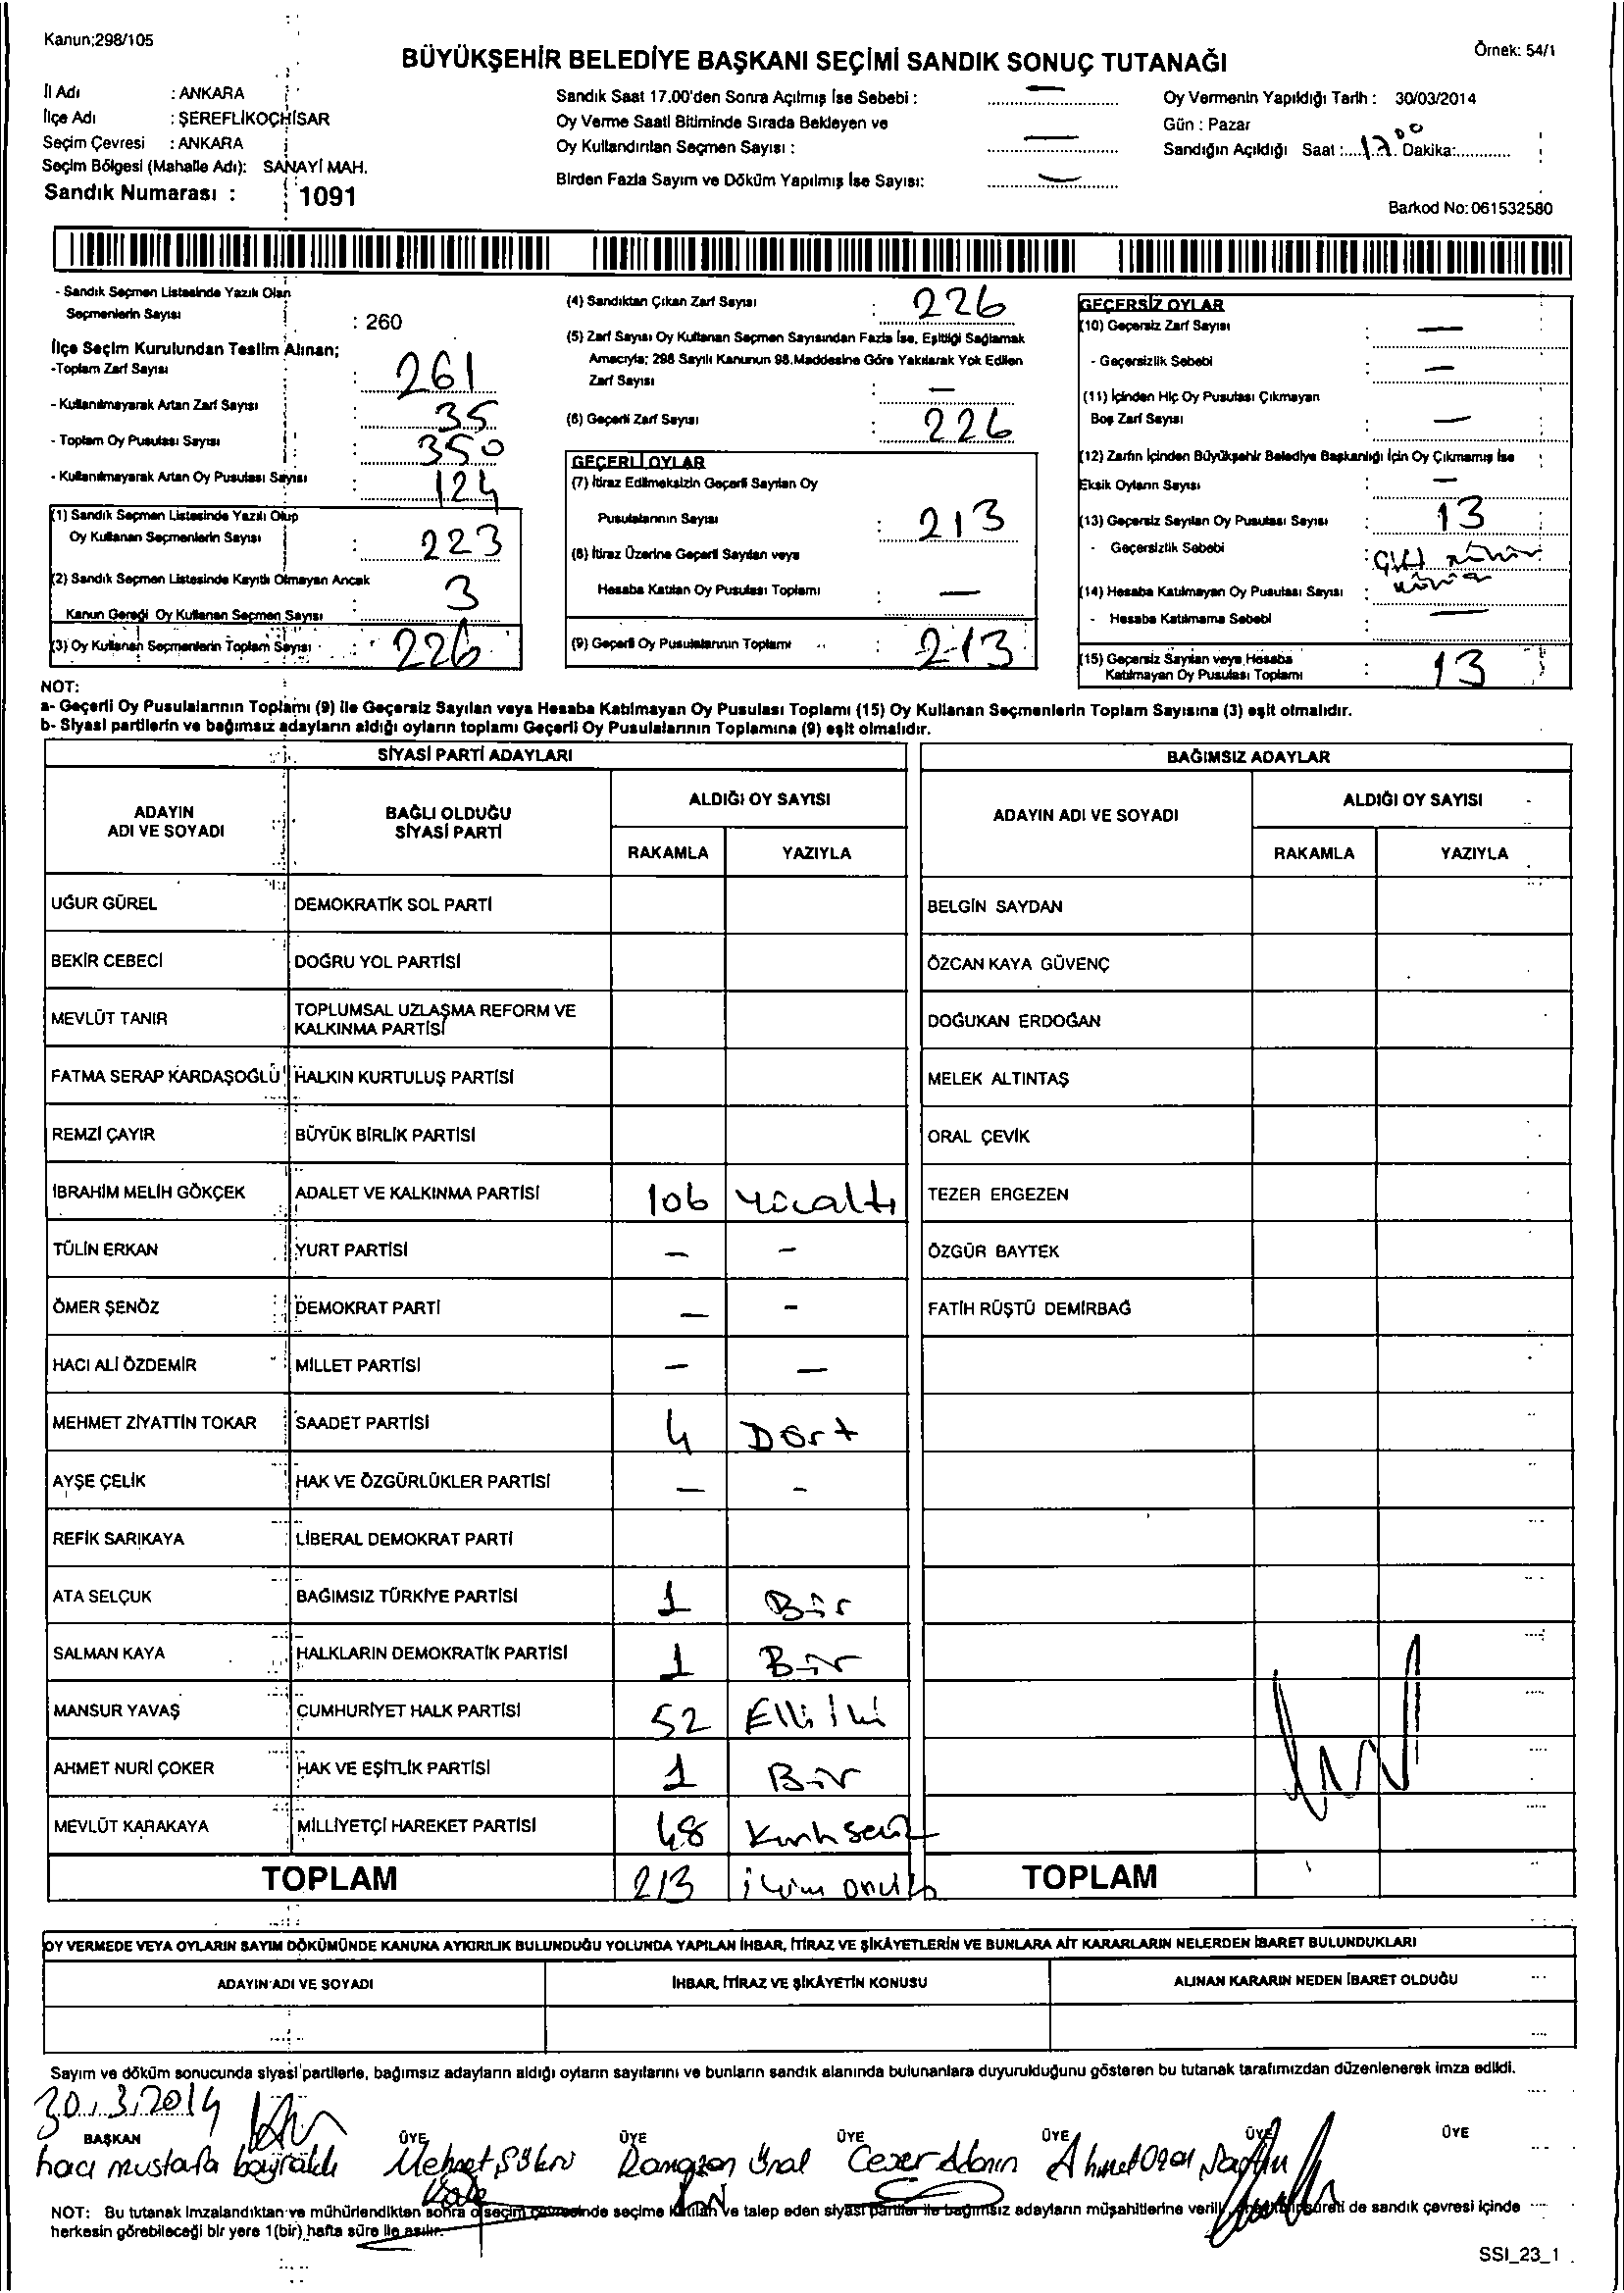 Kanun;298/105
BÜYÜKŞEHİR BELEDİYE BAŞKANI SEÇİMİ SANDIK SONUÇ TUTANAĞI
Örnek: 54/1
İl Adı : ANKARA
İlçe Adı : ŞEREFLİKOÇHİSAR
Seçim Çevresi : ANKARA
Seçim Bölgesi (Mahalle Adı): SANAYİ MAH.
Sandık Numarası : 1091
Sandık Saat 17.00'den Sonra Açılmış İse Sebebi : —
Oy Verme Saati Bitiminde Sırada Bekleyen ve
Oy Kullandırılan Seçmen Sayısı : —
Birden Fazla Sayım ve Döküm Yapılmış İse Sayısı: —
Oy Vermenin Yapıldığı Tarih : 30/03/2014
Gün : Pazar
Sandığın Açıldığı Saat : 17.00 Dakika:
Barkod No: 061532580
- Sandık Seçmen Listesinde Yazılı Olan
Seçmenlerin Sayısı : 260
İlçe Seçim Kurulundan Teslim Alınan;
-Toplam Zarf Sayısı : 261
- Kullanılmayarak Artan Zarf Sayısı : 35
- Toplam Oy Pusulası Sayısı : 350
- Kullanılmayarak Artan Oy Pusulası Sayısı : 124
(1) Sandık Seçmen Listesinde Yazılı Olup
Oy Kullanan Seçmenlerin Sayısı : 223
(2) Sandık Seçmen Listesinde Kayıtlı Olmayan Ancak
Kanun Gereği Oy Kullanan Seçmen Sayısı : 3
(3) Oy Kullanan Seçmenlerin Toplam Sayısı : 226
(4) Sandıktan Çıkan Zarf Sayısı : 226
(5) Zarf Sayısı Oy Kullanan Seçmen Sayısından Fazla İse, Eşitliği Sağlamak
Amacıyla; 298 Sayılı Kanunun 98.Maddesine Göre Yakılarak Yok Edilen
Zarf Sayısı : —
(6) Geçerli Zarf Sayısı : 226
GEÇERLİ OYLAR
(7) İtiraz Edilmeksizin Geçerli Sayılan Oy
Pusulalarının Sayısı : 213
(8) İtiraz Üzerine Geçerli Sayılan veya
Hesaba Katılan Oy Pusulası Toplamı : —
(9) Geçerli Oy Pusulalarının Toplamı : 213
GEÇERSİZ OYLAR
(10) Geçersiz Zarf Sayısı : —
- Geçersizlik Sebebi : —
(11) İçinden Hiç Oy Pusulası Çıkmayan
Boş Zarf Sayısı : —
(12) Zarfın İçinden Büyükşehir Belediye Başkanlığı İçin Oy Çıkmamış İse
Eksik Oyların Sayısı : —
(13) Geçersiz Sayılan Oy Pusulası Sayısı : 13
- Geçersizlik Sebebi :
(14) Hesaba Katılmayan Oy Pusulası Sayısı :
- Hesaba Katılmama Sebebi : —
(15) Geçersiz Sayılan veya Hesaba
Katılmayan Oy Pusulası Toplamı : 13
NOT:
a- Geçerli Oy Pusulalarının Toplamı (9) ile Geçersiz Sayılan veya Hesaba Katılmayan Oy Pusulası Toplamı (15) Oy Kullanan Seçmenlerin Toplam Sayısına (3) eşit olmalıdır.
b- Siyasi partilerin ve bağımsız adayların aldığı oyların toplamı Geçerli Oy Pusulalarının Toplamına (9) eşit olmalıdır.
SİYASİ PARTİ ADAYLARI
BAĞIMSIZ ADAYLAR
ADAYIN ADI VE SOYADI
BAĞLI OLDUĞU SİYASİ PARTİ
ALDIĞI OY SAYISI
RAKAMLA YAZIYLA
ADAYIN ADI VE SOYADI
ALDIĞI OY SAYISI
RAKAMLA YAZIYLA
UĞUR GÜREL DEMOKRATİK SOL PARTİ BELGİN SAYDAN
BEKİR CEBECİ DOĞRU YOL PARTİSİ ÖZCAN KAYA GÜVENÇ
MEVLÜT TANIR TOPLUMSAL UZLAŞMA REFORM VE KALKINMA PARTİSİ DOĞUKAN ERDOĞAN
FATMA SERAP KARDAŞOĞLU HALKIN KURTULUŞ PARTİSİ MELEK ALTINTAŞ
REMZİ ÇAYIR BÜYÜK BİRLİK PARTİSİ ORAL ÇEVİK
İBRAHİM MELİH GÖKÇEK ADALET VE KALKINMA PARTİSİ 106 yüzaltı TEZER ERGEZEN
TÜLİN ERKAN YURT PARTİSİ — — ÖZGÜR BAYTEK
ÖMER ŞENÖZ DEMOKRAT PARTİ — — FATİH RÜŞTÜ DEMİRBAĞ
HACI ALİ ÖZDEMİR MİLLET PARTİSİ — —
MEHMET ZİYATTİN TOKAR SAADET PARTİSİ 4 Dört
AYŞE ÇELİK HAK VE ÖZGÜRLÜKLER PARTİSİ — —
REFİK SARIKAYA LİBERAL DEMOKRAT PARTİ
ATA SELÇUK BAĞIMSIZ TÜRKİYE PARTİSİ 1 Bir
SALMAN KAYA HALKLARIN DEMOKRATİK PARTİSİ 1 Bir
MANSUR YAVAŞ CUMHURİYET HALK PARTİSİ 52 Elli iki
AHMET NURİ ÇOKER HAK VE EŞİTLİK PARTİSİ 1 Bir
MEVLÜT KARAKAYA MİLLİYETÇİ HAREKET PARTİSİ 48 Kırksekiz
TOPLAM 213 TOPLAM
OY VERMEDE VEYA OYLARIN SAYIM DÖKÜMÜNDE KANUNA AYKIRILIK BULUNDUĞU YOLUNDA YAPILAN İHBAR, İTİRAZ VE ŞİKÂYETLERİN VE BUNLARA AİT KARARLARIN NELERDEN İBARET BULUNDUKLARI
ADAYIN ADI VE SOYADI İHBAR, İTİRAZ VE ŞİKÂYETİN KONUSU ALINAN KARARIN NEDEN İBARET OLDUĞU
Sayım ve döküm sonucunda siyasi partilerle, bağımsız adayların aldığı oyların sayılarını ve bunların sandık alanında bulunanlara duyurulduğunu gösteren bu tutanak tarafımızdan düzenlenerek imza edildi.
30.3.2014
BAŞKAN ÜYE ÜYE ÜYE ÜYE ÜYE ÜYE
hacı mustafa Mehmet Ramazan Ünal Ahmet
NOT: Bu tutanak imzalandıktan ve mühürlendikten sonra seçime katılan ve talep eden siyasi partiler ile bağımsız adayların müşahitlerine sureti de sandık çevresi içinde
herkesin görebileceği bir yere 1(bir) hafta süre ile asılır.
SSI_23_1